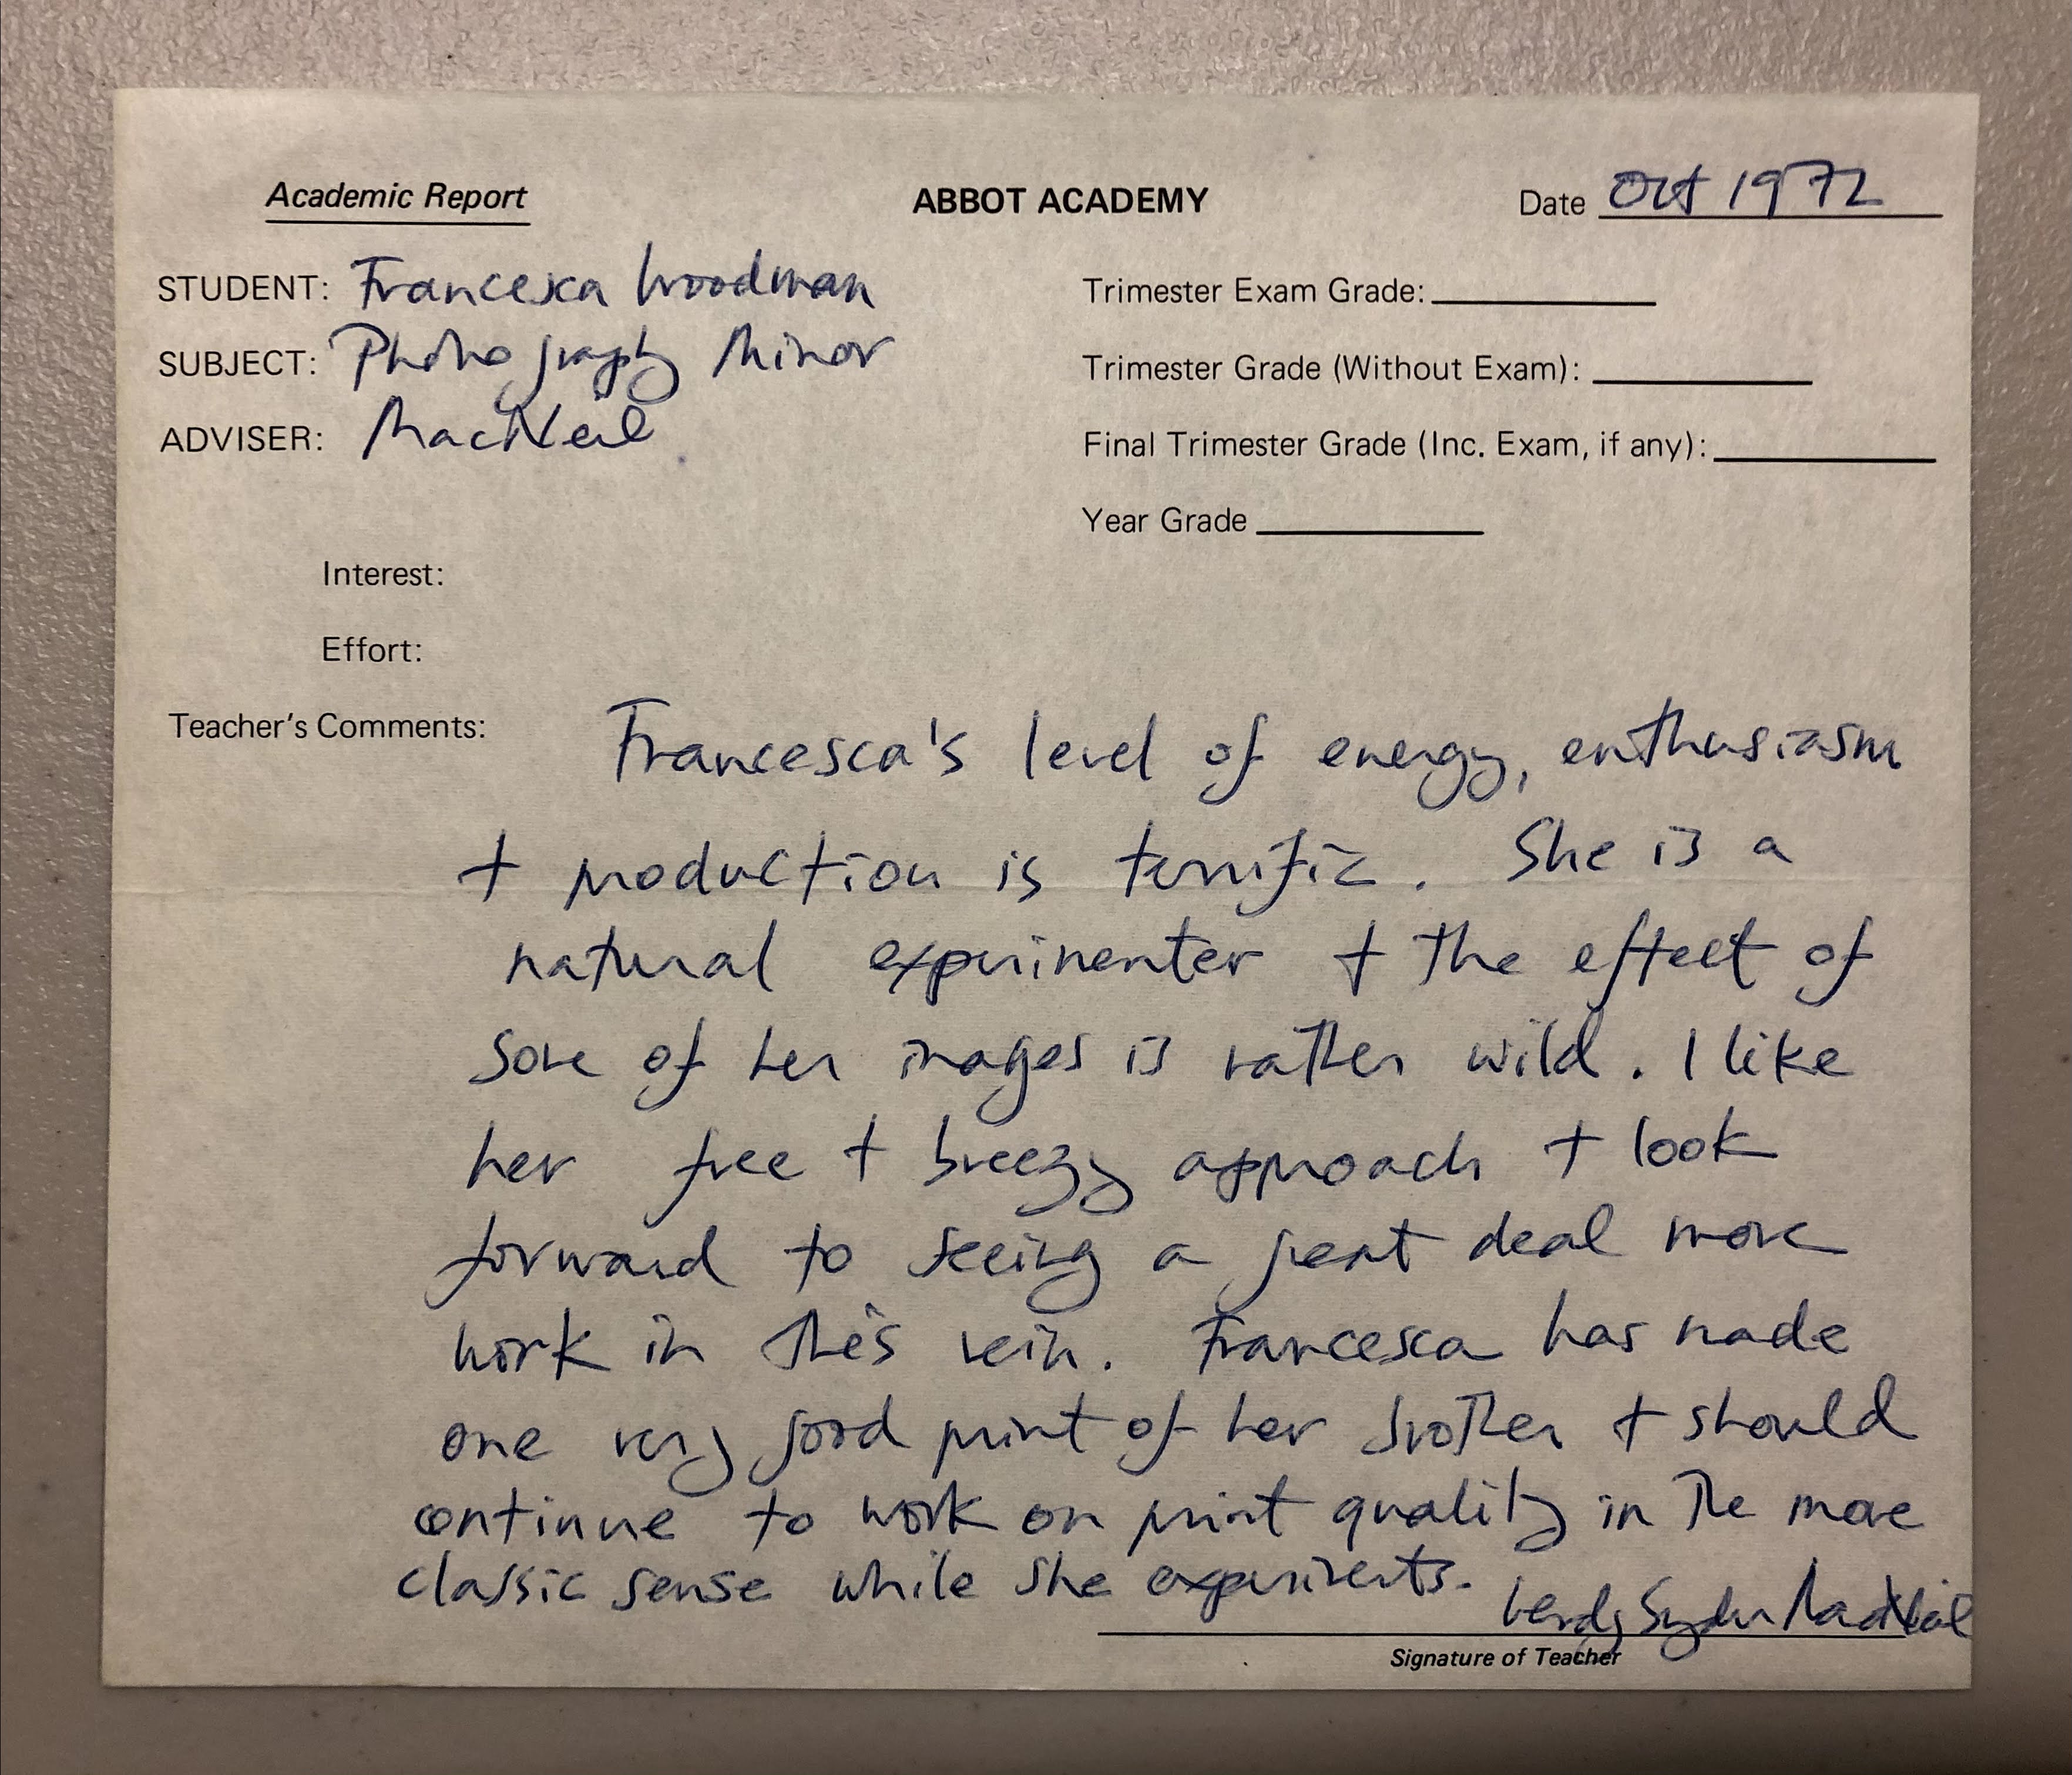 Academic Report
ABBOT ACADEMY
Date Oct 1972
STUDENT: Francesca Woodman
SUBJECT: Photography Minor
ADVISER: MacNeil
Trimester Exam Grade:
Trimester Grade (Without Exam):
Final Trimester Grade (Inc. Exam, if any):
Year Grade
Interest:
Effort:
Teacher's Comments: Francesca's level of energy, enthusiasm
+ production is terrific. She is a
natural experimenter + the effect of
some of her images is rather wild. I like
her free + breezy approach + look
forward to seeing a great deal more
work in this vein. Francesca has made
one very good print of her brother + should
continue to work on print quality in the more
classic sense while she experiments.
Wendy Snyder MacNeil
Signature of Teacher